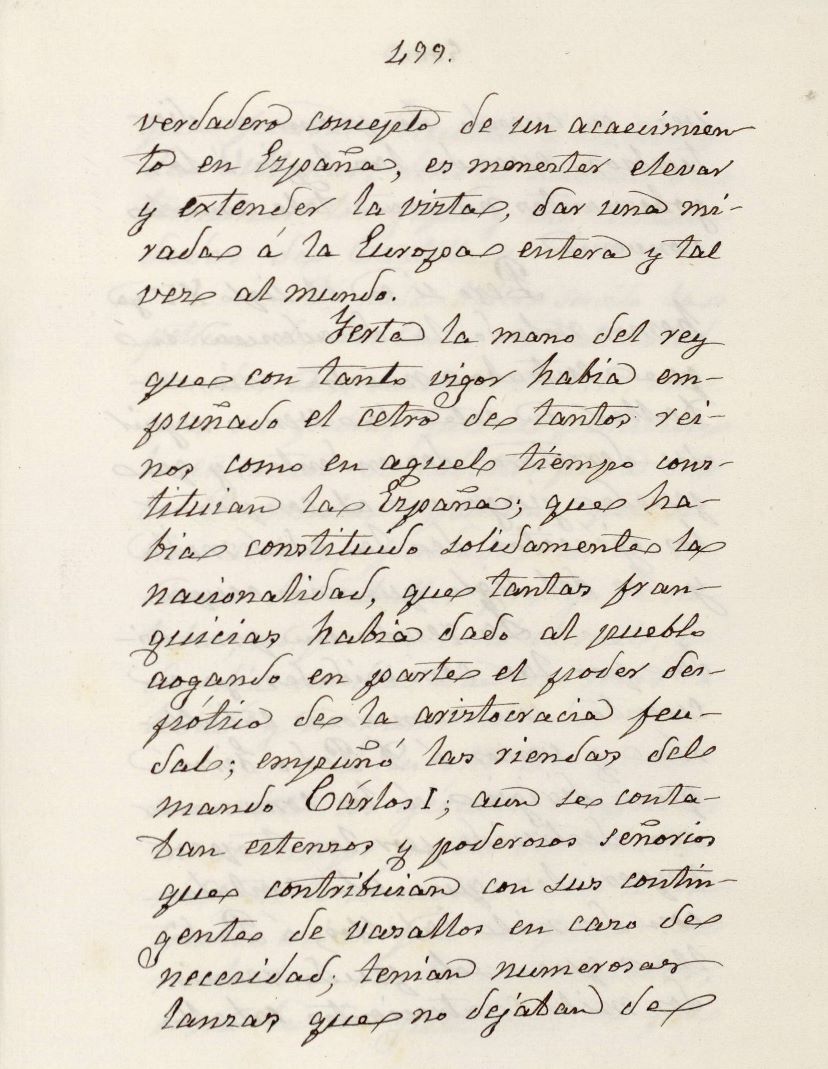 499.
verdadero concepto de un acaecimien-
to en España, es menester elevar
y extender la vista, dar una mi-
rada á la Europa entera y tal
vez al mundo.
Yerta la mano del rey
que con tanto vigor habia em-
puñado el cetro de tantos rei-
nos como en aquel tiempo cons-
tituian la España; que ha-
bia constituido solidamente la
nacionalidad, que tantas fran-
quicias habia dado al pueblo
aogando en parte el poder des-
pótico de la aristocracia feu-
dal; empuñó las riendas del
mando Cárlos I; aun se conta-
ban estensos y poderosos señorios
que contribuian con sus contin-
gente de vasallos en caso de
necesidad; tenian numerosas
lanzas que no dejaban de